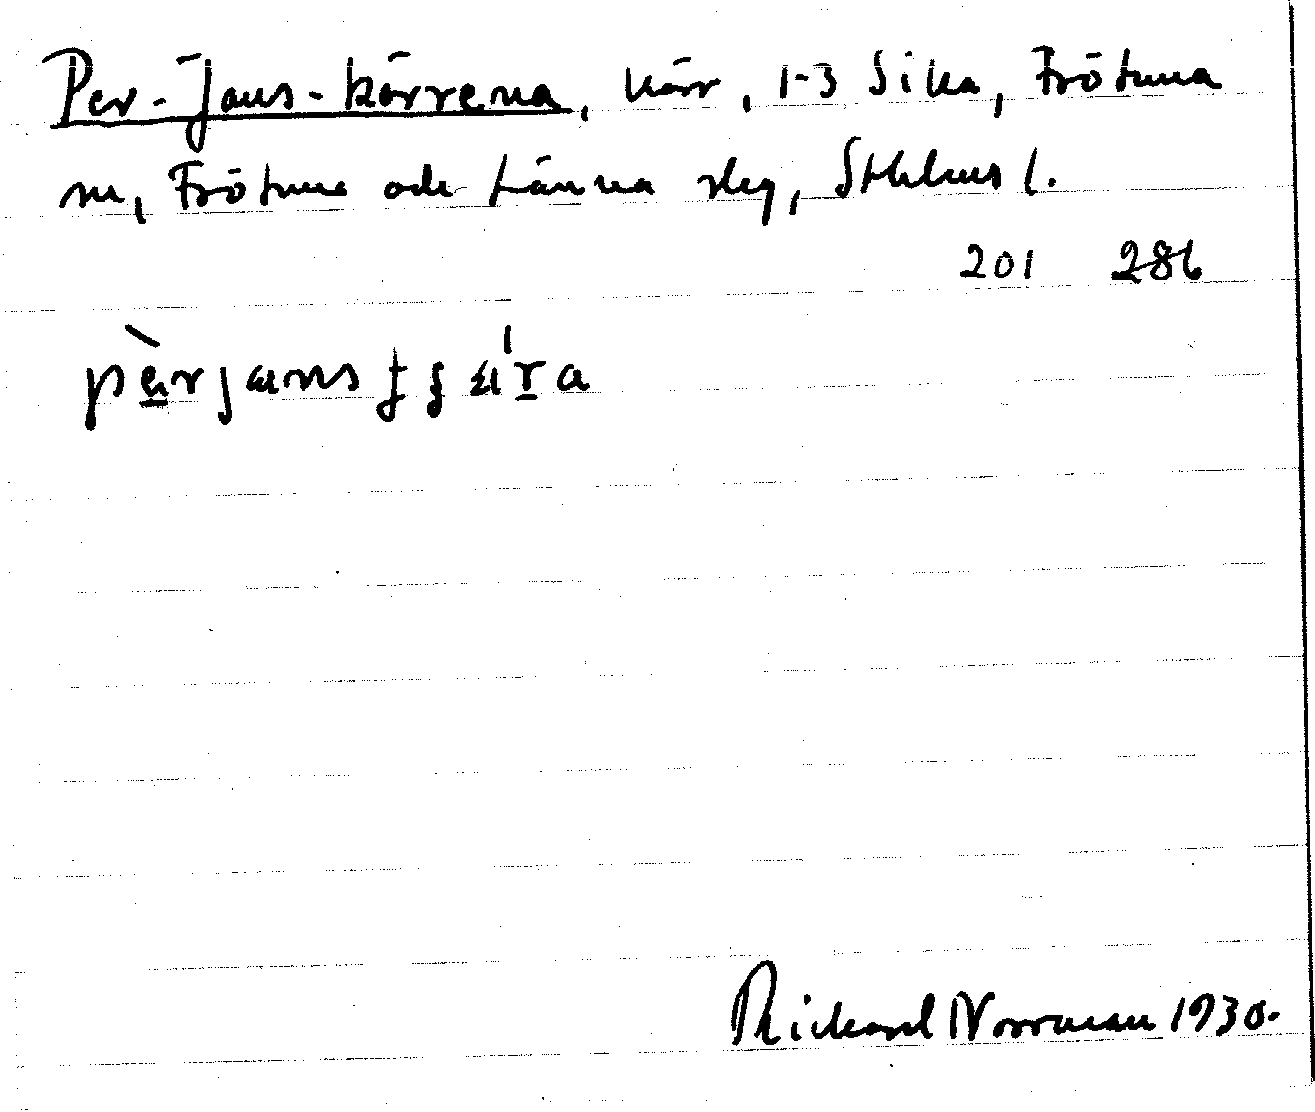 Per-Jans-kärrena, kärr, 1-3 Sika, Frötuna
sn, Frötuna och Länna slg, Sthlms l.
201 286
Rickard Norrman 1930.